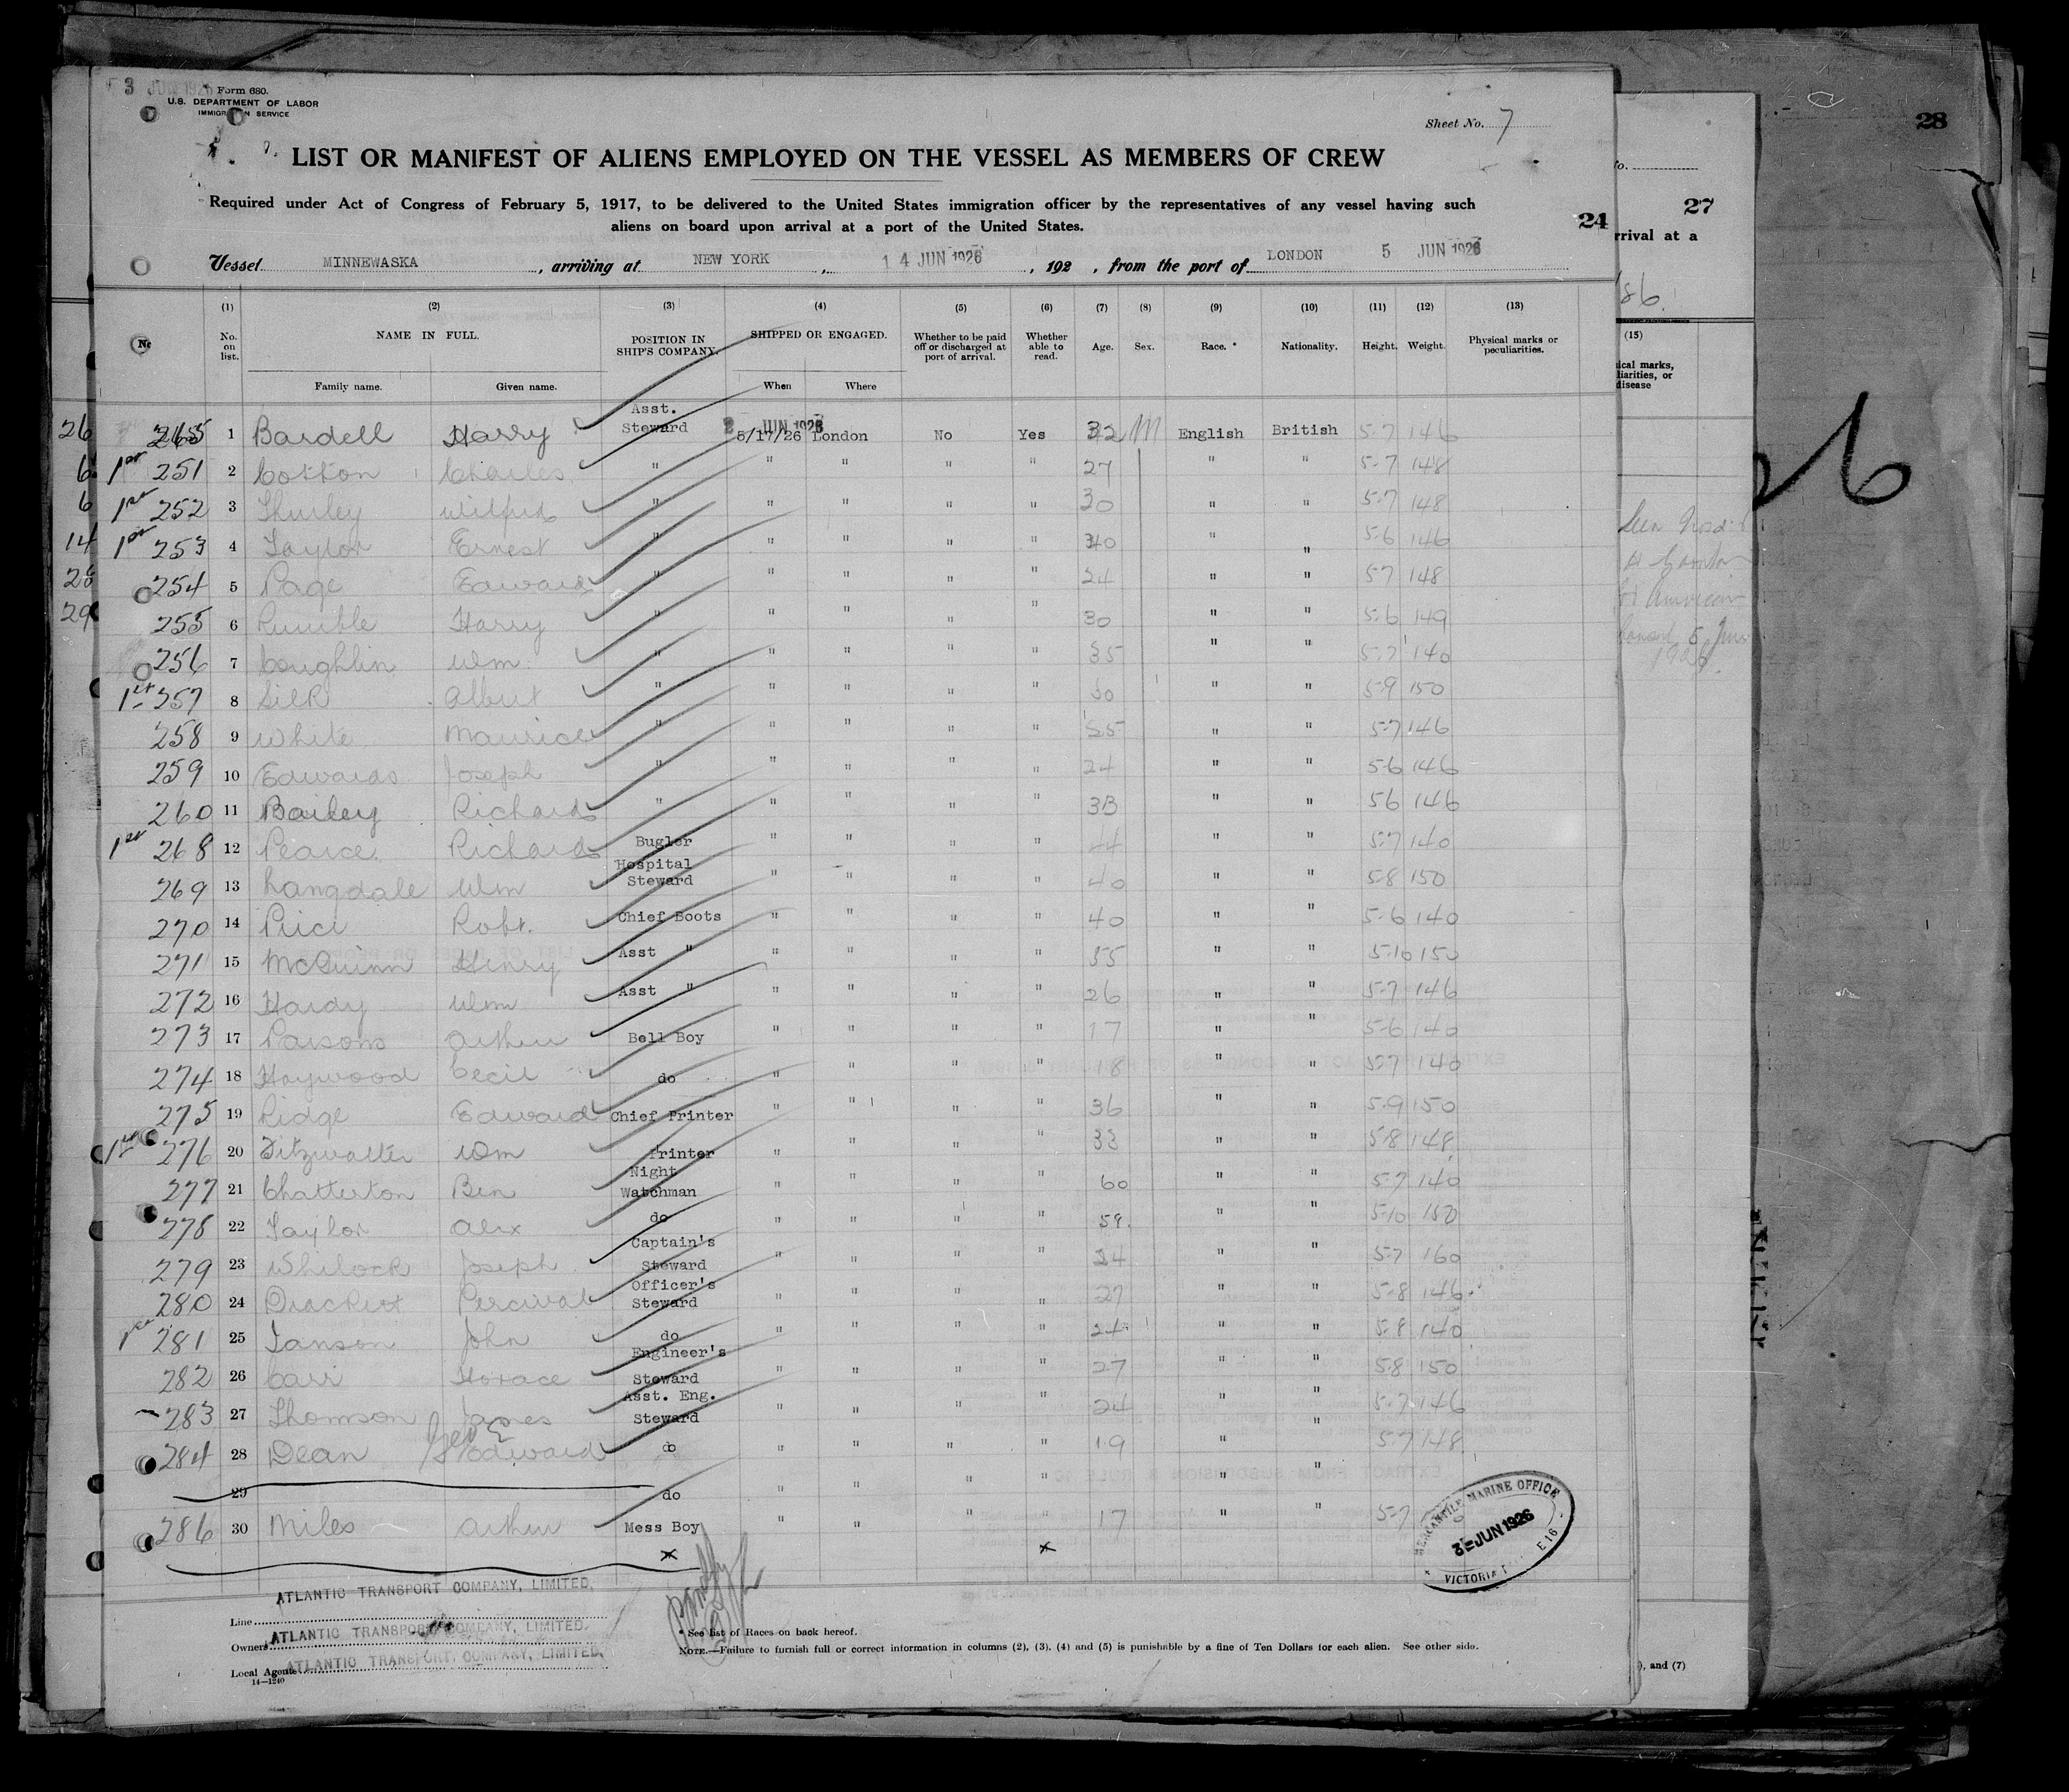 3 JUN 1926 Form 680.
U.S. DEPARTMENT OF LABOR
IMMIGRATION SERVICE
Sheet No. 7
28
LIST OR MANIFEST OF ALIENS EMPLOYED ON THE VESSEL AS MEMBERS OF CREW
Required under Act of Congress of February 5, 1917, to be delivered to the United States immigration officer by the representatives of any vessel having such
aliens on board upon arrival at a port of the United States.
24
27
rrival at a
Vessel MINNEWASKA, arriving at NEW YORK, 14 JUN 1926, 192 , from the port of LONDON 5 JUN 1926
(1) (2) (3) (4) (5) (6) (7) (8) (9) (10) (11) (12) (13) (15)
No. on list. NAME IN FULL. POSITION IN SHIP'S COMPANY. SHIPPED OR ENGAGED. Whether to be paid off or discharged at port of arrival. Whether able to read. Age. Sex. Race. * Nationality. Height. Weight. Physical marks or peculiarities.
Family name. Given name. When Where
26 265 1 Bardell Harry Asst. Steward 5/17/26 London No Yes 32 M English British 5-7 146
6 251 2 Cotton Charles " " " " " 27 " " 5-7 148
6 252 3 Shurley Wilfred " " " " " 30 " " 5-7 148
14 253 4 Taylor Ernest " " " " " 30 " " 5-6 146
254 5 Page Edward " " " " " 24 " " 5-7 148
29 255 6 Rumble Harry " " " " " 30 " " 5-6 149
256 7 Coughlin Wm. " " " " " 35 " " 5-7 140
1st 257 8 Silk Albert " " " " " 30 " " 5-9 150
258 9 White Maurice " " " " " 25 " " 5-7 146
259 10 Edwards Joseph " " " " " 24 " " 5-6 146
260 11 Bailey Richard " " " " " " " 5-6 146
268 12 Pearce Richard Bugler " " " " 44 " " 5-7 140
269 13 Langdale Wm Hospital Steward " " " " 40 " " 5-8 150
270 14 Price Robt. Chief Boots " " " " 40 " " 5-6 140
271 15 McQuinn Henry Asst " " " " " 55 " " 5-10 150
272 16 Hardy Wm Asst " " " " " 26 " " 5-7 146
273 17 Parsons Arthur Bell Boy " " " " 17 " " 5-6 140
274 18 Haywood Cecil do " " " " 18 " " 5-7 140
275 19 Ridge Edward Chief Printer " " " " 36 " " 5-9 150
276 20 Fitzwalter Wm Printer " " " " 33 " " 5-8 148
277 21 Chatterton Ben Night Watchman " " " " 60 " " 5-7 140
278 22 Taylor Alex do " " " " 59. " " 5-10 150
279 23 Whilock Joseph Captain's Steward " " " " 24 " " 5-7 160
280 24 Percival Officer's Steward " " " " 27 " " 5-8 146
281 25 Janson John do " " " " 24 " " 5-8 140
282 26 Carr Horace Engineer's Steward " " " " 27 " " 5-8 150
283 27 Thomson James Asst. Eng. Steward " " " " 24 " " 5-7 146
284 28 Dean Geo E Edward do " " " " 19 " " 5-7 148
29 do " " " " " "
286 30 Miles Arthur Mess Boy " " " " 17 " " 5-7
MERCANTILE MARINE OFFICE
3 - JUN 1926
VICTORIA E 16
Line ATLANTIC TRANSPORT COMPANY, LIMITED.
Owners ATLANTIC TRANSPORT COMPANY, LIMITED.
Local Agents ATLANTIC TRANSPORT COMPANY, LIMITED.
14—1240
* See list of Races on back hereof.
NOTE.—Failure to furnish full or correct information in columns (2), (3), (4) and (5) is punishable by a fine of Ten Dollars for each alien. See other side.
), and (7)